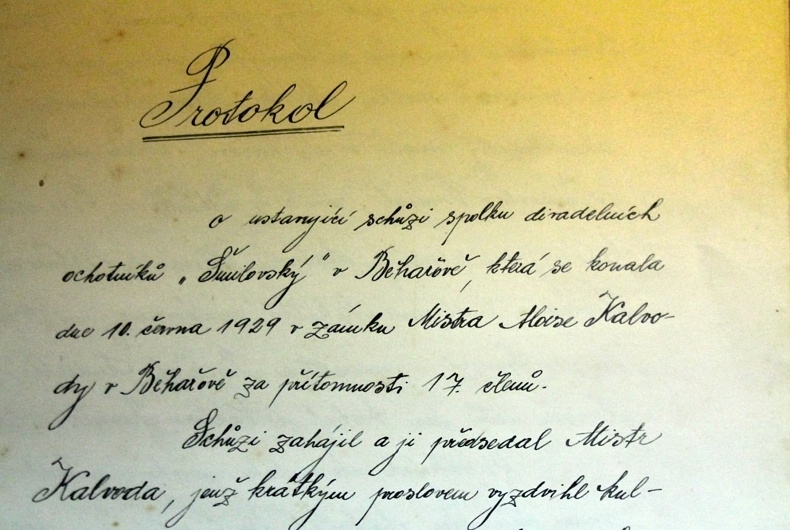 Protokol
o ustanyjící schůzi spolku diradelních
ochotníků „Šmilovský" v Běhařově, která se konala
dne 10. června 1929 v zámku Mistra Aloise Kalvo-
dy v Běhařově za přítomnosti 17. členů.
Schůzi zahájil a ji předsedal Mistr
Kalvoda, jenž krátkým proslovem vyzdvihl kul-